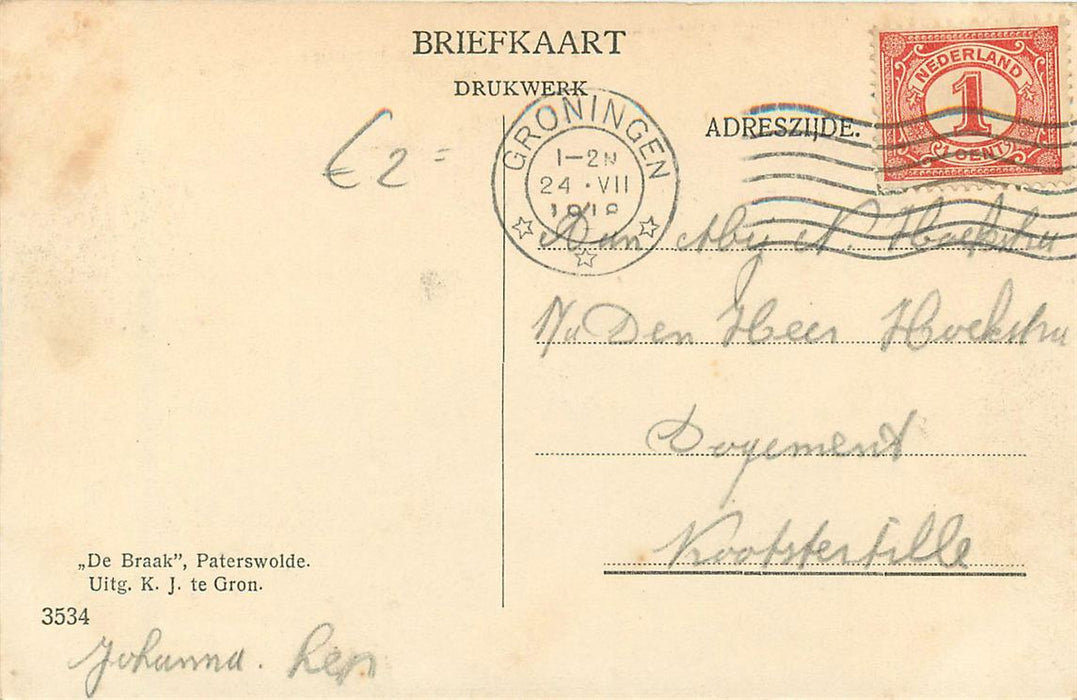 BRIEFKAART
DRUKWERK
ADRESZIJDE.
NEDERLAND
1
CENT
GRONINGEN
1-2N
24 · VII
1918
€ 2 =
Aan Mej N. Hoekstra
Den Heer Hoekstra
Logement
Kootstertille
„De Braak”, Paterswolde.
Uitg. K. J. te Gron.
3534
Johanna.